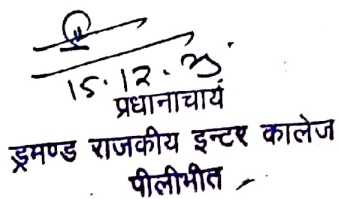 15.12.
प्रधानाचार्य
ड्रमण्ड राजकीय इन्टर कालेज
पीलीभीत